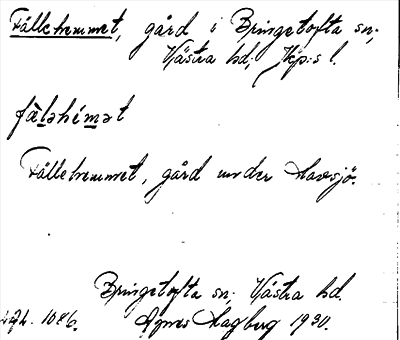 Fällehemmet, gård i Bringetofta sn,
Västra hd, Jkp:s l.
fàləhémət
Fällehemmet, gård under Havsjö.
Bringetofta sn, Västra hd.
1086. Agnes Hagberg 1930.